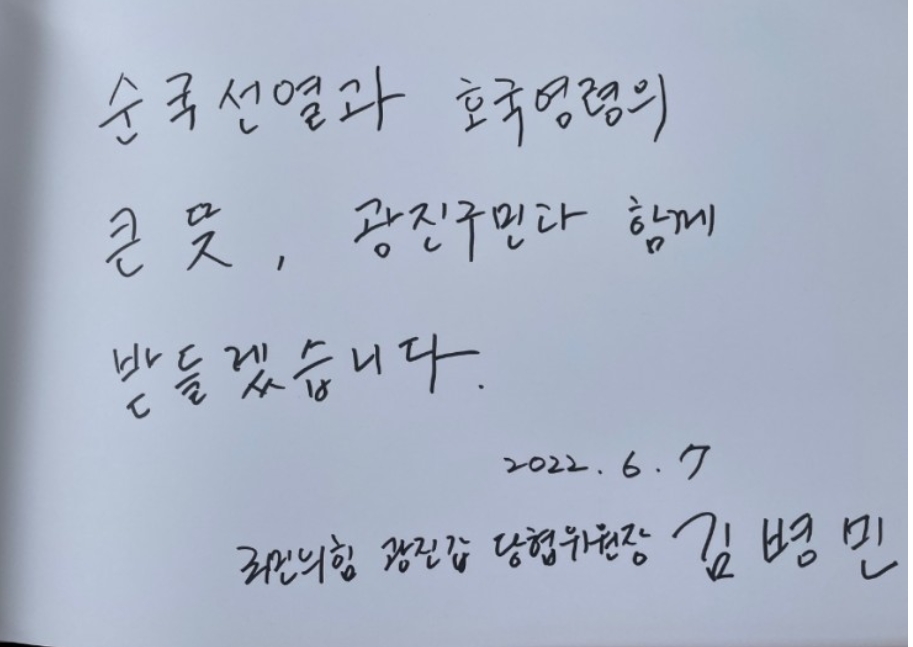 순국선열과 호국영령의
큰 뜻, 광진구민과 함께
받들겠습니다.
2022. 6. 7
국민의힘 광진갑 당협위원장 김병민